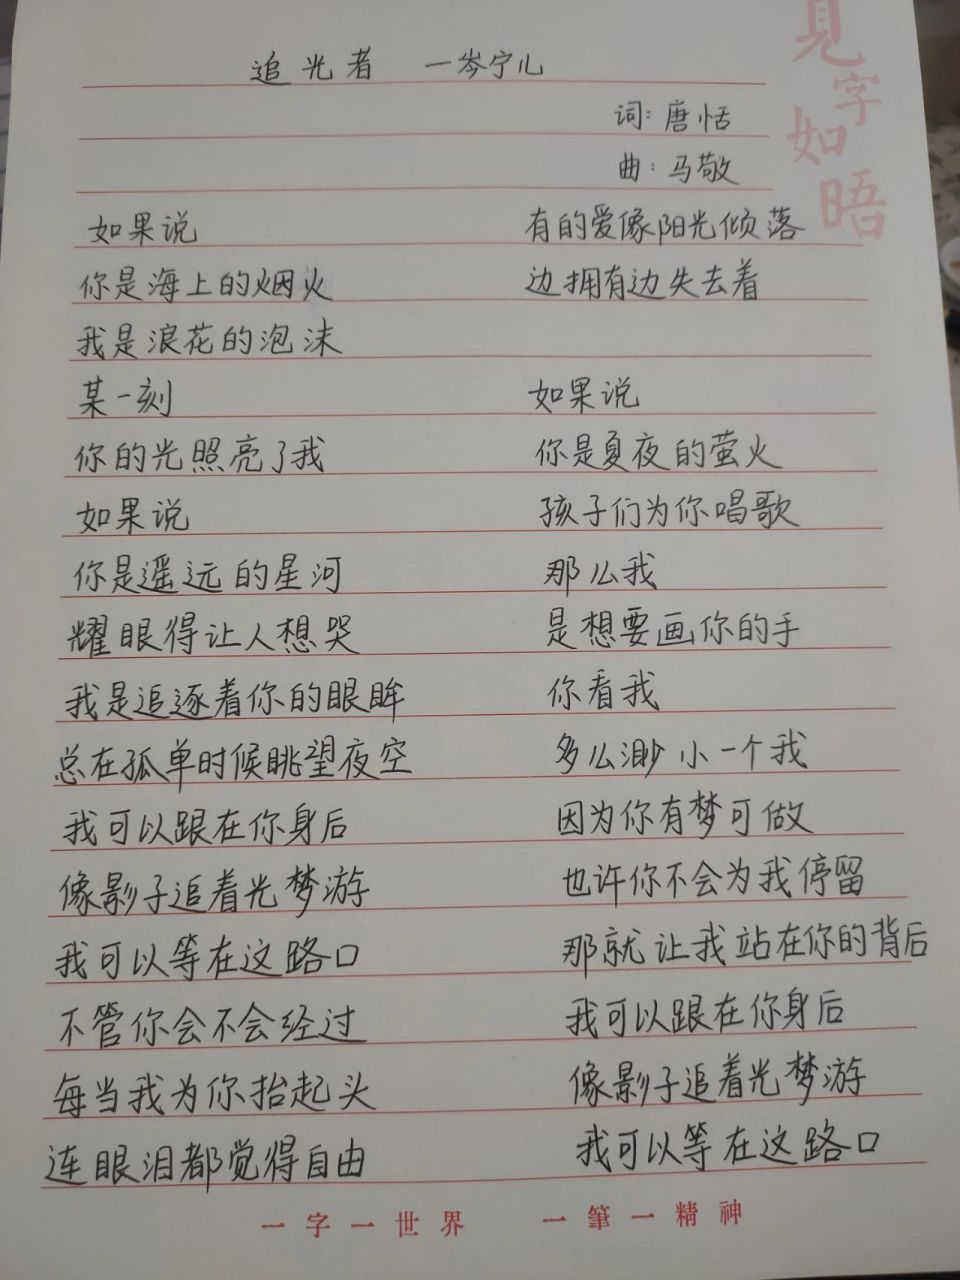 見字如晤
追光者 一岑宁儿
词：唐恬
曲：马敬
如果说
你是海上的烟火
我是浪花的泡沫
某一刻
你的光照亮了我
如果说
你是遥远的星河
耀眼得让人想哭
我是追逐着你的眼眸
总在孤单时候眺望夜空
我可以跟在你身后
像影子追着光梦游
我可以等在这路口
不管你会不会经过
每当我为你抬起头
连眼泪都觉得自由
有的爱像阳光倾落
边拥有边失去着
如果说
你是夏夜的萤火
孩子们为你唱歌
那么我
是想要画你的手
你看我
多么渺小一个我
因为你有梦可做
也许你不会为我停留
那就让我站在你的背后
我可以跟在你身后
像影子追着光梦游
我可以等在这路口
一字一世界 一筆一精神